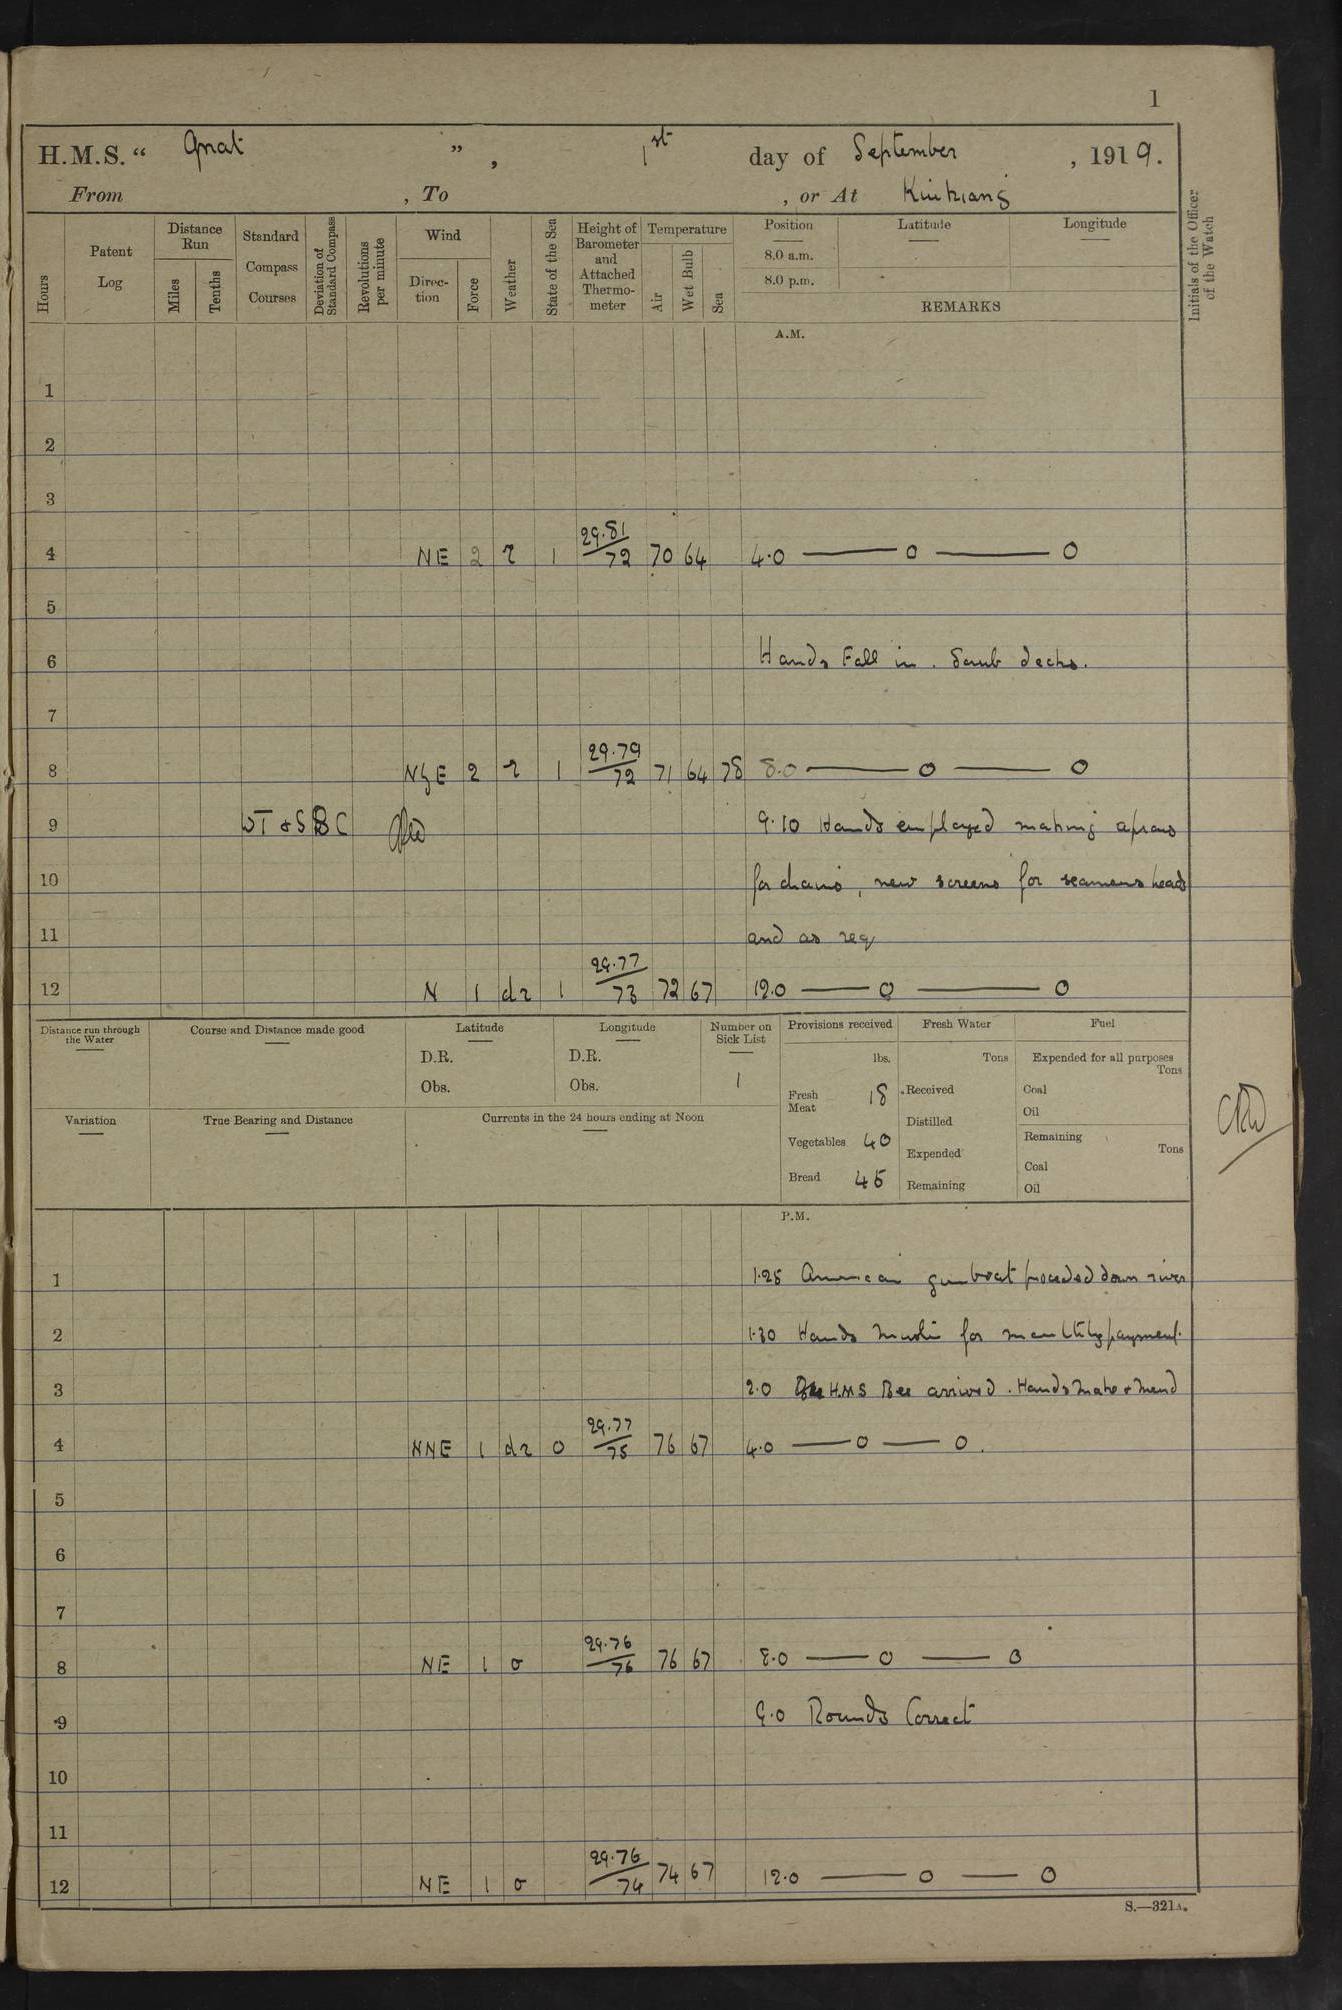 1
H.M.S. “ Gnat ” , 1st day of September , 1919.
From , To , or At Kiukiang
Hours
Patent Log
Distance Run
Miles
Tenths
Standard Compass Courses
Deviation of Standard Compass
Revolutions per minute
Wind
Direc-tion
Force
Weather
State of the Sea
Height of Barometer and Attached Thermo-meter
Temperature
Air
Wet Bulb
Sea
Position
Latitude
Longitude
8.0 a.m.
8.0 p.m.
REMARKS
Initials of the Officer of the Watch
A.M.
1
2
3
4 NE 2 r 1 29.81/72 70 64 4.0 — o — o
5
6 Hands Fall in . Scrub decks.
7
8 NbE 2 r 1 29.79/72 71 64 78 8.0 — o — o
9 WT & SBC 9.10 Hands employed making aprons
10 for chains, new screens for seamens heads
11 and as req
12 N 1 dr 1 29.77/73 72 67 12.0 — o — o
Distance run through the Water
Course and Distance made good
Latitude
D.R.
Obs.
Longitude
D.R.
Obs.
Number on Sick List
1
Provisions received
lbs.
Fresh Meat 18
Vegetables 40
Bread 45
Fresh Water
Tons
Received
Distilled
Expended
Remaining
Fuel
Expended for all purposes
Tons
Coal
Oil
Remaining
Tons
Coal
Oil
Variation
True Bearing and Distance
Currents in the 24 hours ending at Noon
P.M.
1 1.25 American gunboat proceeded down river
2 1.30 Hands Muster for monthly payment.
3 2.0 H.M.S Bee arrived . Hands Make & Mend
4 NNE 1 dr 0 29.77/75 76 67 4.0 — o — o .
5
6
7
8 NE 1 o 29.76/76 76 67 8.0 — o — o
9 9.0 Rounds Correct
10
11
12 NE 1 o 29.76/74 74 67 12.0 — o — o
S.—321A.